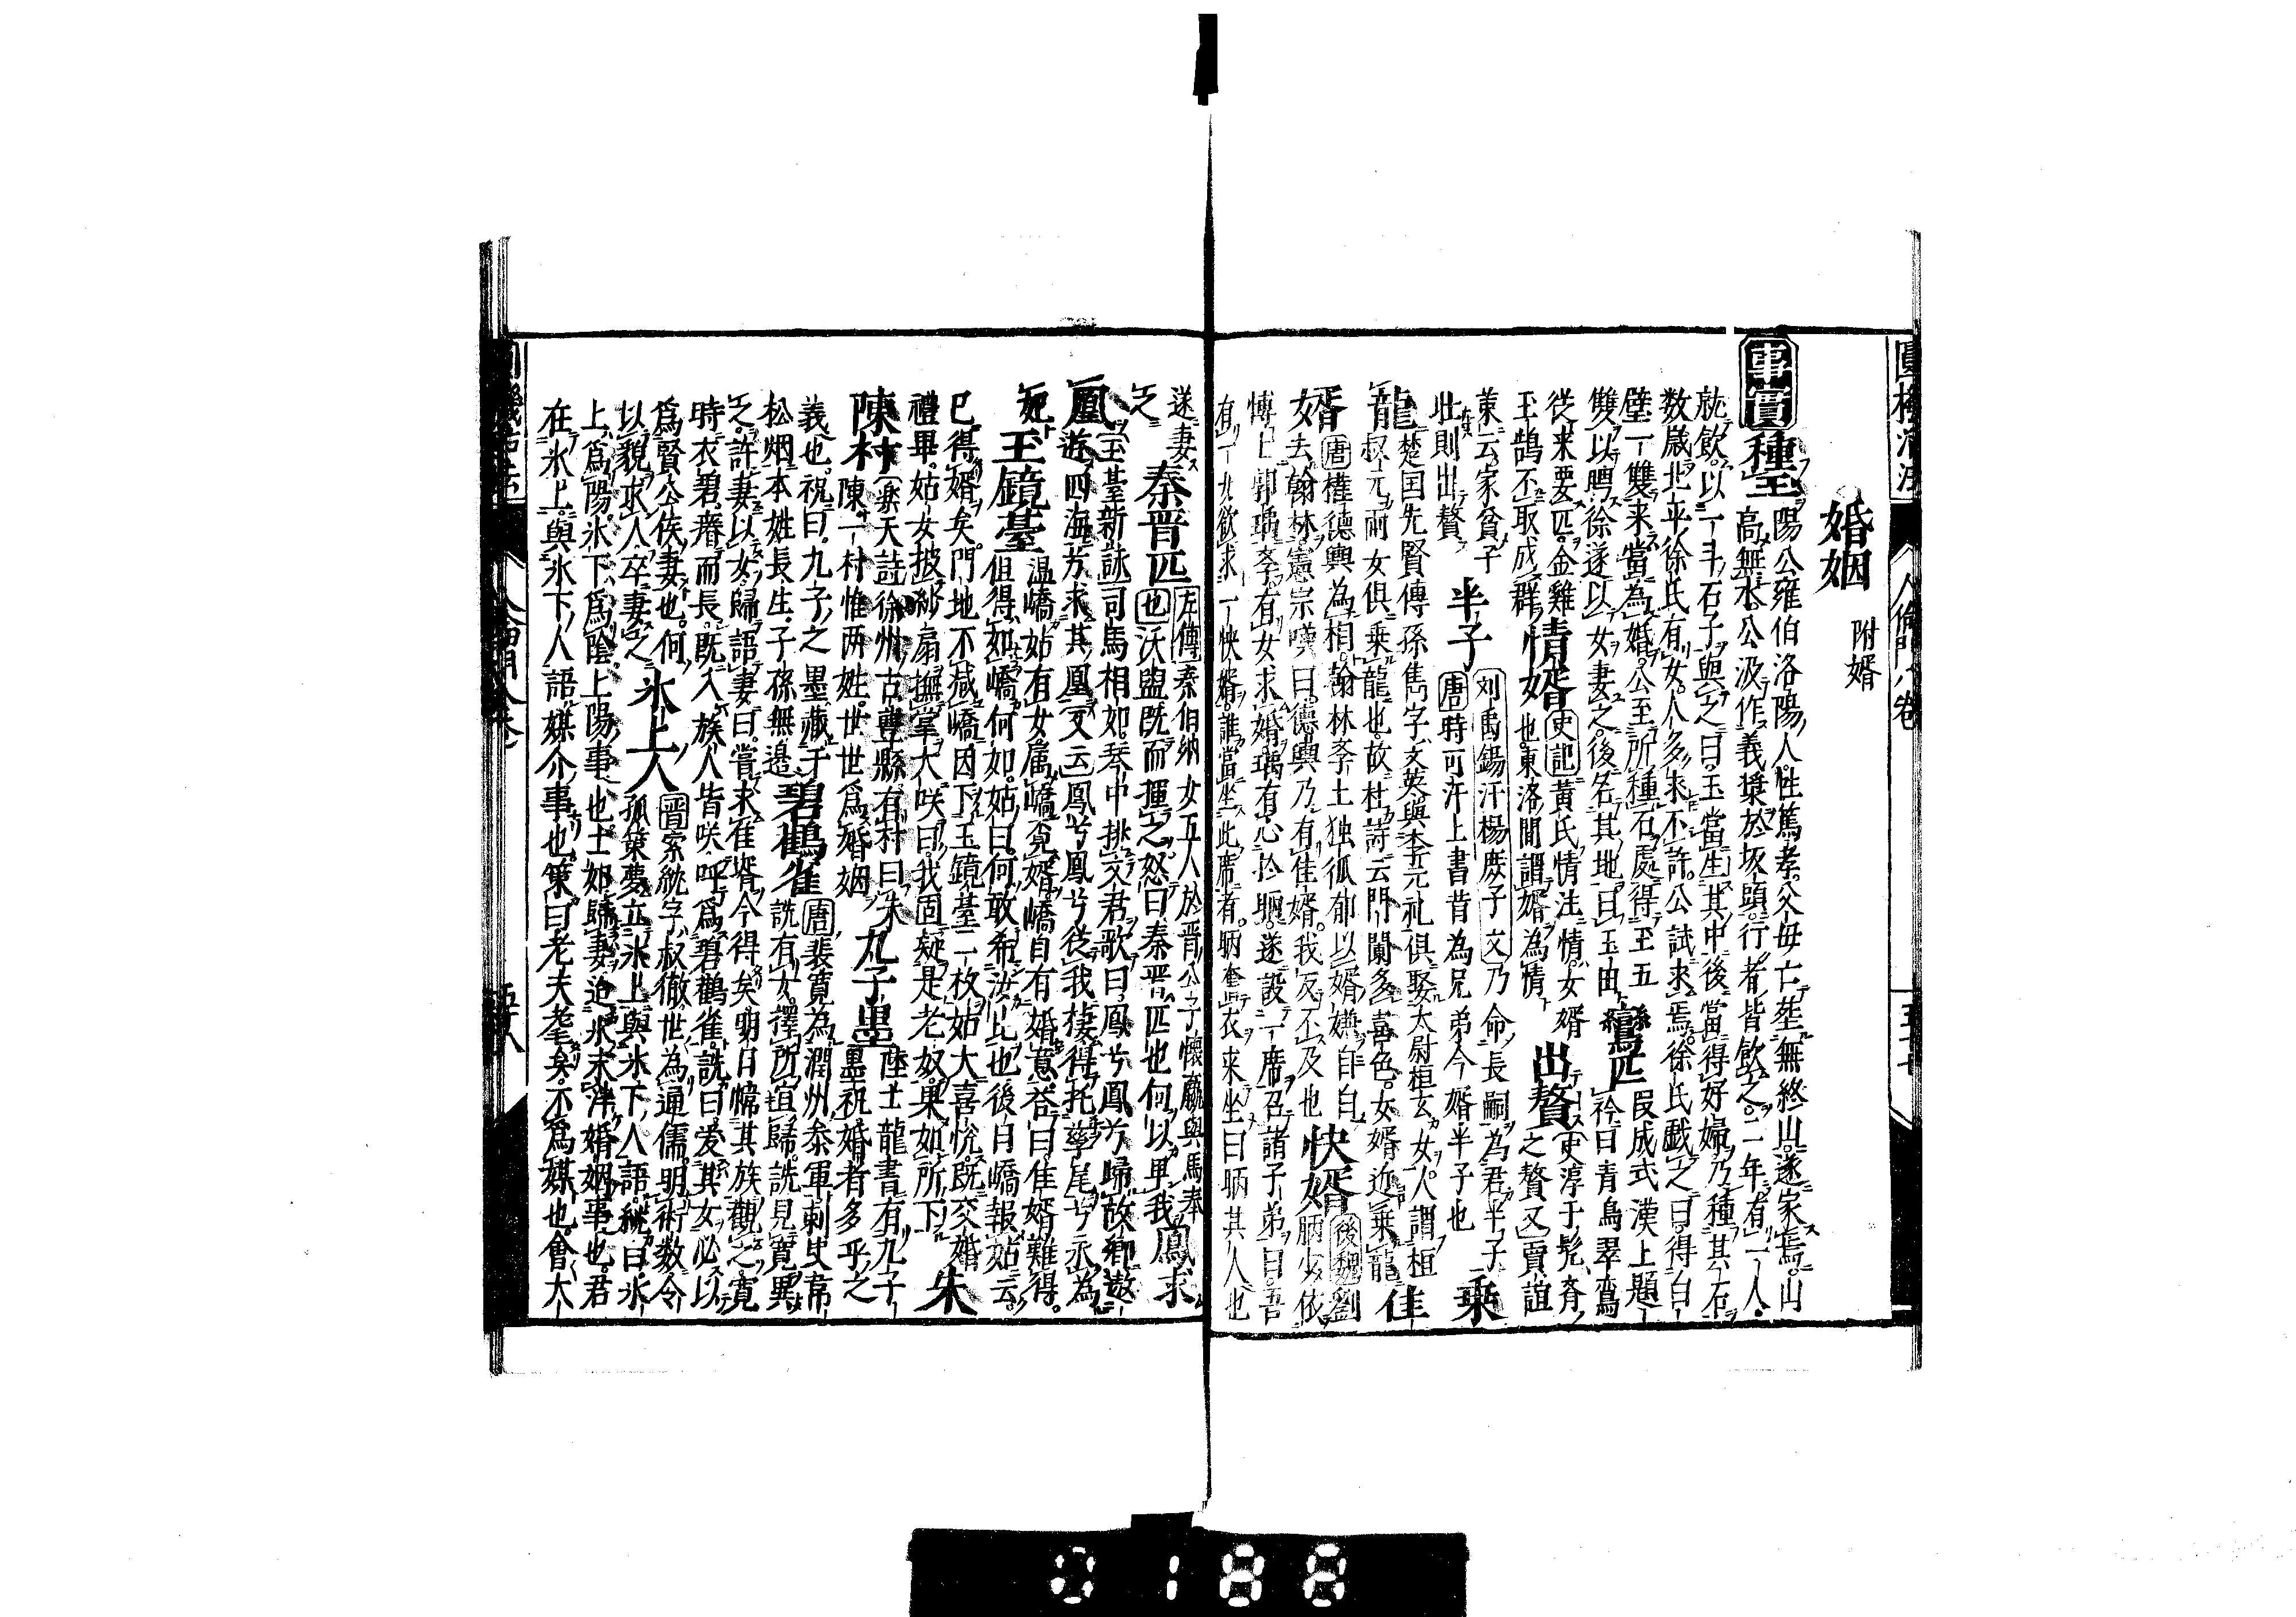 圓機活法
人倫門八卷
五十七
婚姻 附婿
事實 種玉 陽公雍伯洛陽人性篤孝父母亡塟無終山遂家焉山
高無水公汲作義漿於坂頭行者皆飲之二年有一人
就飲以一斗石子與之曰玉當生其中後當得好婦乃種其石
数歲北平徐氏有女人多求不許公試求焉徐氏戯之曰得白
璧一雙来當為婚公至所種石處得玉五
雙以聘徐遂以女妻之後名其地曰玉田 鸞匹 段成式漢上題
衿曰青鳥翠鸞
從来要匹金雞
玉鵠不取成群 情婿 史記黃氏情注情女婿
也東洛間謂婿為情 出贅 史淳于髡斉
之贅又賈誼
策云家貧子
壮則出贅 半子 刘禹錫汗楊庻子文乃命長嗣為君半子
唐時可汗上書昔為兄弟今婿半子也 乗
龍 楚国先賢傳孫雋字文英與李元礼俱娶太尉桓玄女人謂桓
叔元両女俱乗龍也故杜詩云門闌多喜色女婿近乗龍 佳
婿 唐權德輿為相翰林斈士独孤郁以婿嫌自白
去翰林憲宗嘆曰德輿乃有佳婿我反不及也 快婿 後魏劉
昞少依
博士郭瑀斈有女求婚瑀有心於昞遂設一席召諸子弟曰吾
有一女欲求一快婿誰當坐此席者昞奎衣来坐曰昞其人也
遂妻
之 秦晋匹 左傳秦伯納女五人於晋公子懷嬴與焉奉
也沃盥既而揮之怒曰秦晋匹也何以卑我 鳳求
凰 玉臺新詠司馬相如琴中挑文君歌曰鳳兮鳳兮歸故鄉遨
遊四海方求其凰又云鳳兮鳳兮從我棲得托孳尾兮永為
妃 玉鏡臺 温嶠姑有女属嶠覓婿嶠自有婚意答曰佳婿難得
但得如嶠何如姑曰何敢希汝比也後日嶠報姑云
已得婿矣門地不减嶠因下玉鏡臺一枚姑大喜悅既交婚
禮畢姑女披紗扇撫掌大咲曰我固疑是老奴果如所下 朱
陳村 楽天詩徐州古豊縣有村曰朱
陳一村惟两姓世世為婚姻 九子墨 陸士龍書有九子
墨祝婚者多乎之
義也祝曰九子之墨藏于
松烟本姓長生子孫無邉 碧鸛雀 唐裴寛為潤州叅軍刺史韋
詵有女擇所宜歸詵見寛異
之許妻以女歸語妻曰嘗求佳婿今得矣明日幃其族觀之寛
時衣碧瘠而長既入族人皆咲呼為碧鸛雀詵曰愛其女必以
為賢公侯妻也何
以貌求人卒妻之 氷上人 晋索紞字叔徹世為通儒明術数令
孤策夢立氷上與氷下人語紞曰氷
上為陽氷下為陰上陽事也士如歸妻迨氷未泮婚姻事也君
在氷上與氷下人語媒介事也策曰老夫耄矣不為媒也會大
圓機活法
人倫門八卷
五十八
0188